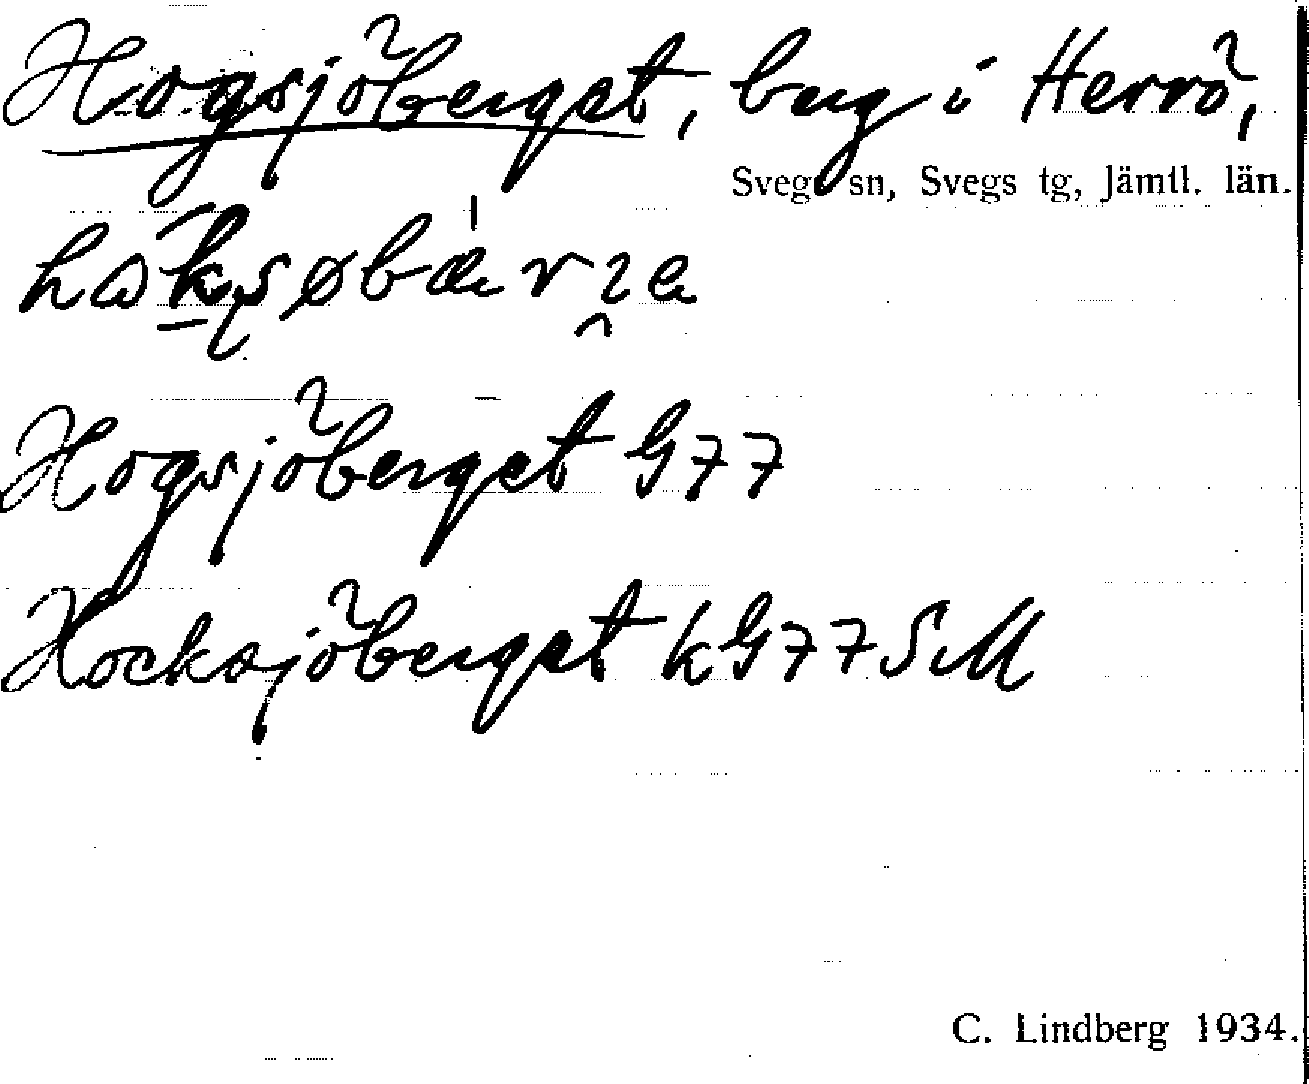 Hogsjöberget, berg i Herrö,
Svegs sn, Svegs tg, Jämtl. län.
Hogsjöberget G77
Hocksjöberget kG77SM
C. Lindberg 1934.